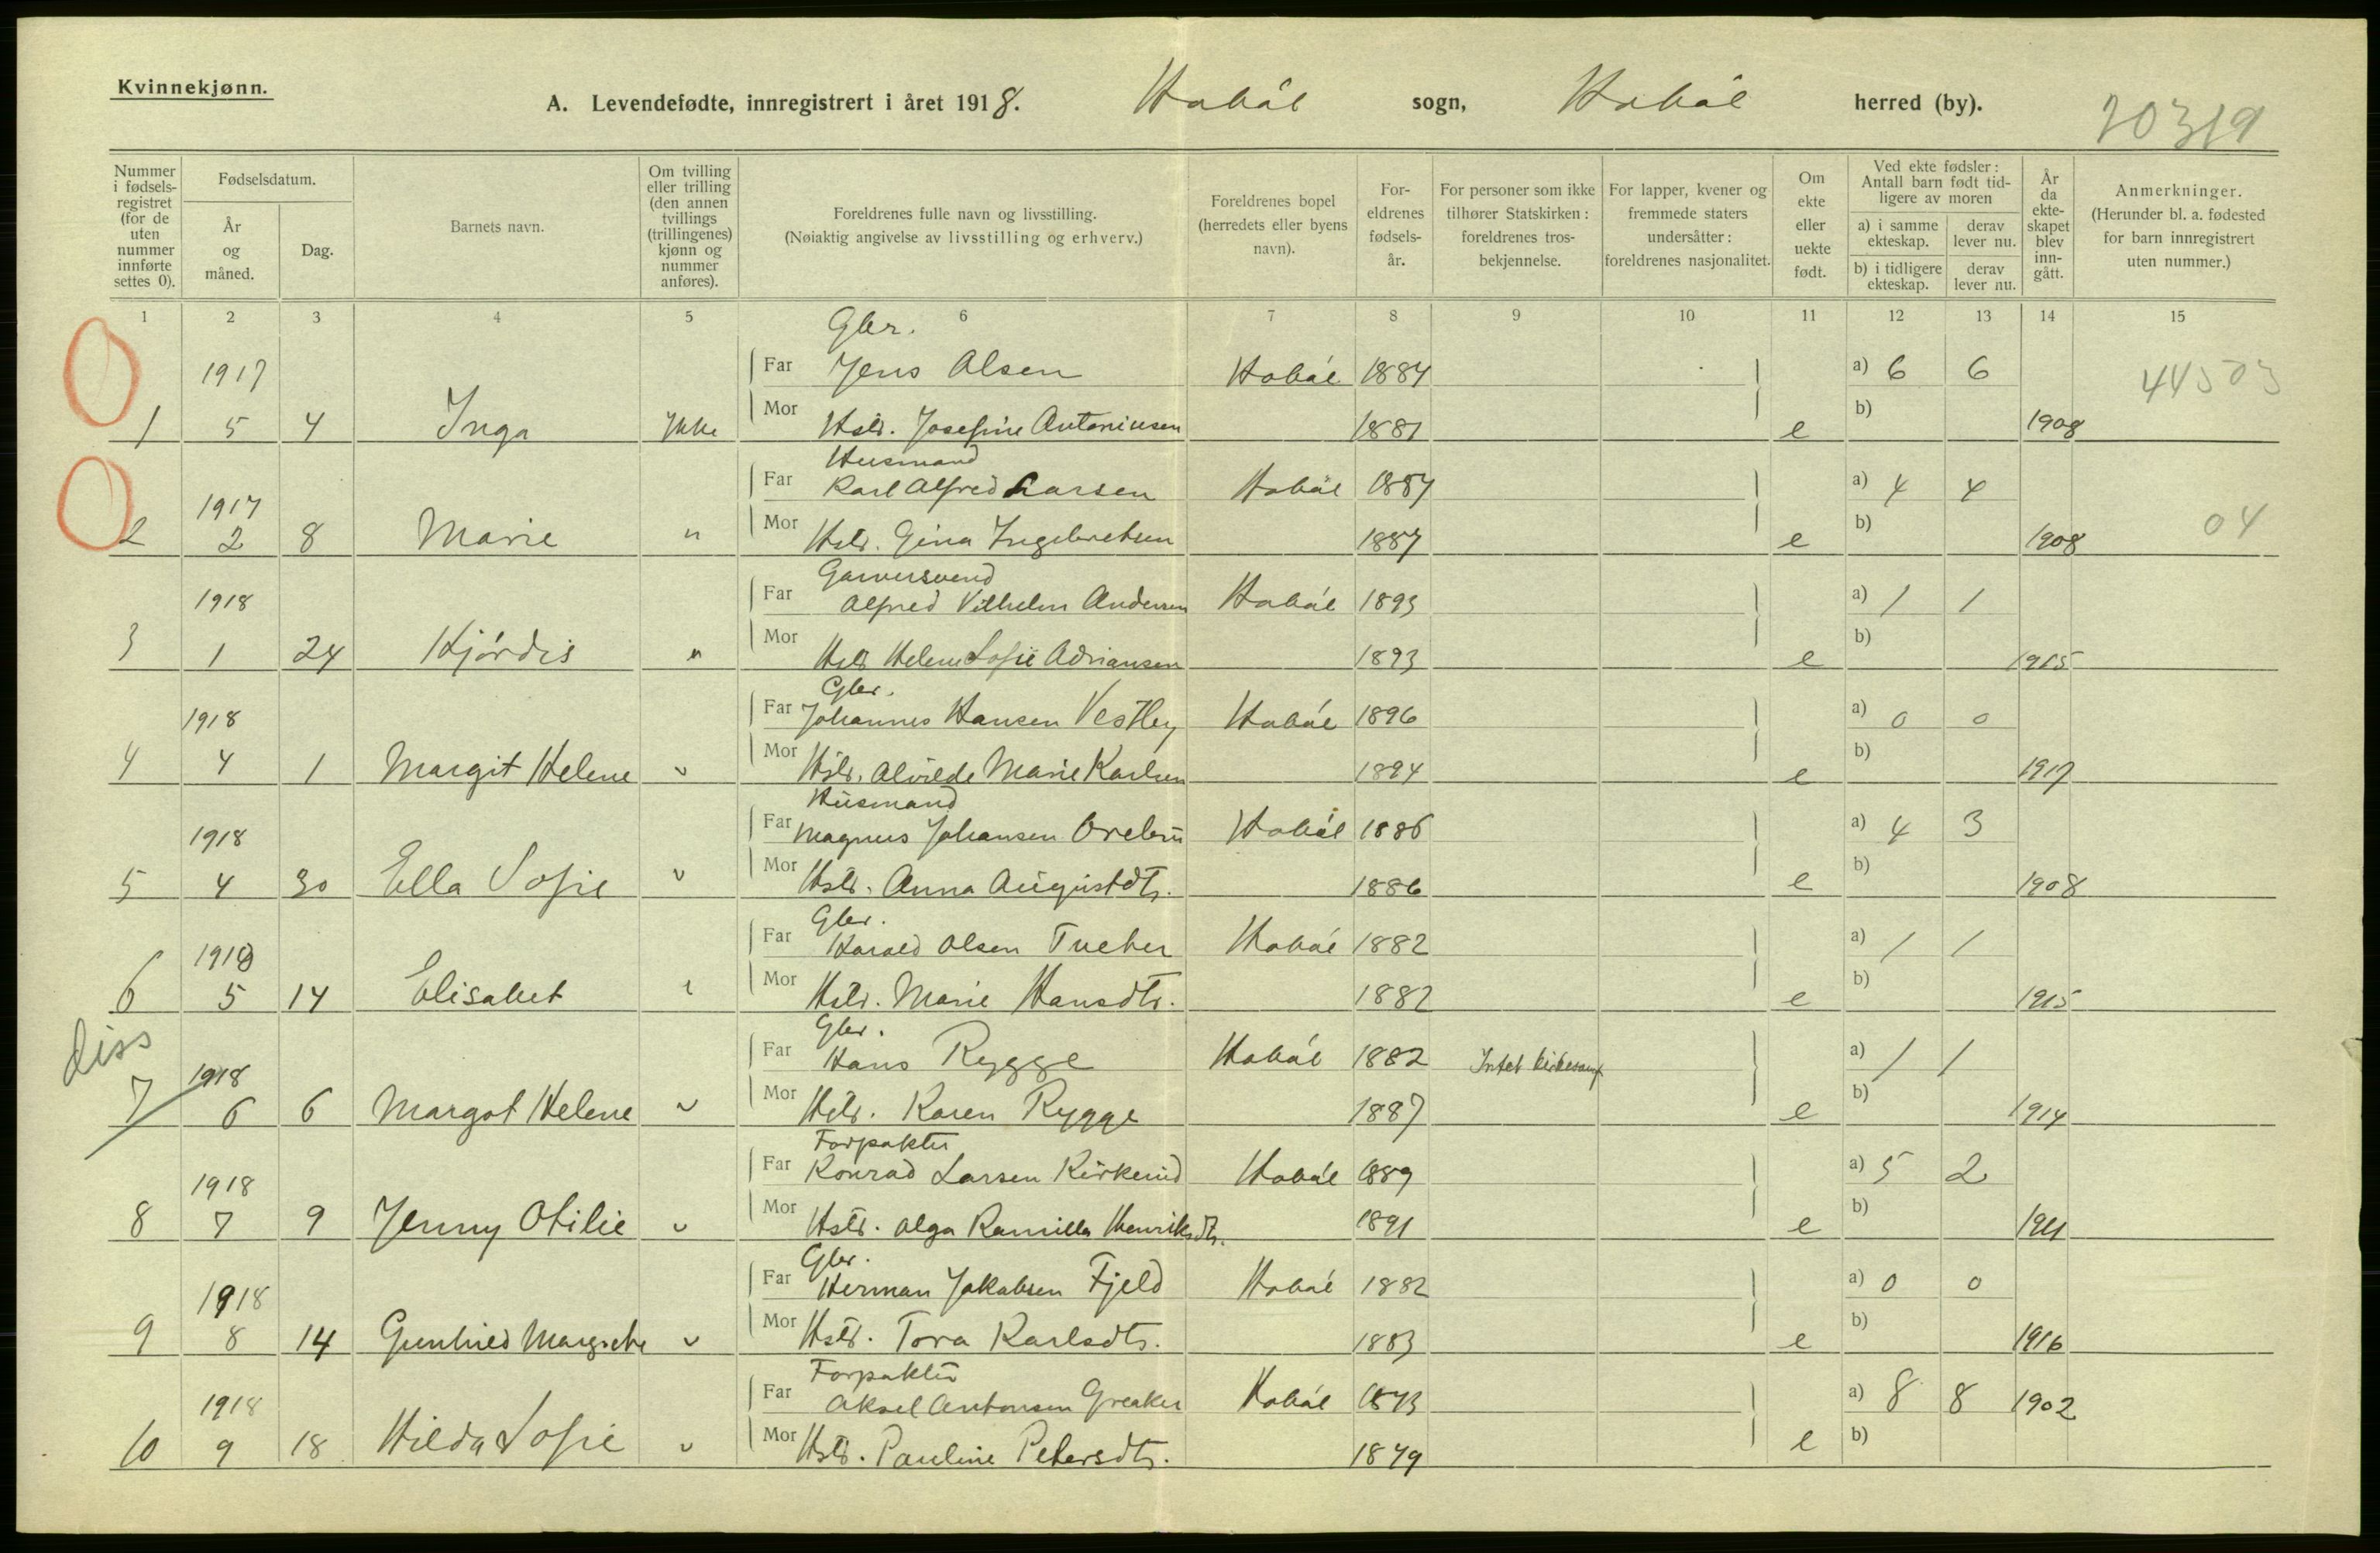 Kvinnekjønn.
A. Levendefødte, innregistrert i året 1918. Hobøl sogn, Hobøl herred (by). 20319
Nummer i fødsels-registret (for de uten nummer innførte settes 0).
Fødselsdatum.
År og måned.
Dag.
Barnets navn.
Om tvilling eller trilling (den annen tvillings (trillingenes) kjønn og nummer anføres).
Foreldrenes fulle navn og livsstilling.
(Nøiaktig angivelse av livsstilling og erhverv.)
Foreldrenes bopel (herredets eller byens navn).
For-eldrenes fødsels-år.
For personer som ikke tilhører Statskirken: foreldrenes tros-bekjennelse.
For lapper, kvener og fremmede staters undersåtter: foreldrenes nasjonalitet.
Om ekte eller uekte født.
Ved ekte fødsler: Antall barn født tid-ligere av moren
a) i samme ekteskap.
derav lever nu.
b) i tidligere ekteskap.
derav lever nu.
År da ekte-skapet blev inn-gått.
Anmerkninger.
(Herunder bl. a. fødested for barn innregistrert uten nummer.)
1 2 3 4 5 6 7 8 9 10 11 12 13 14 15
Gbr.
1917 Far Jens Olsen Hobøl 1884 a) 6 6 44503
1 5 4 Inga Ikke Mor Hstr. Josefine Antoniusen 1881 e b) 1908
Husmand
1917 Far Karl Alfred Larsen Hobøl 1887 a) 4 4
2 2 8 Marie " Mor Hstr. Gina Ingebretsen 1887 e b) 1908 04
Garversvend
1918 Far Alfred Vilhelm Andersen Hobøl 1893 a) 1 1
3 1 24 Hjördis " Mor Hstr Helene Sofie Adriansen 1893 e b) 1915
Gbr.
1918 Far Johannes Hansen Vestby Hobøl 1896 a) 0 0
4 4 1 Margit Helene " Mor Hstr. Alvilde Marie Karlsen 1894 e b) 1917
Husmand
1918 Far Magnus Johansen Hobøl 1886 a) 4 3
5 4 30 Ella Sofie " Mor Hstr. Anna Augustdtr. 1886 e b) 1908
Gbr.
1918 Far Harald Olsen Tveter Hobøl 1882 a) 1 1
6 5 14 Elisabet " Mor Hstr. Marie Hansdtr. 1882 e b) 1915
diss
Gbr.
1918 Far Hans Rygge Hobøl 1882 Intet kirkesamf a) 1 1
7 6 6 Margot Helene " Mor Hstr. Karen Rygge 1887 e b) 1914
Forpakter
1918 Far Konrad Larsen Kirkerud Hobøl 1889 a) 5 2
8 7 9 Jenny Otilie " Mor Hstr. Olga Kamilla Henriksdtr. 1891 e b) 1911
Gbr.
1918 Far Herman Jakobsen Fjeld Hobøl 1882 a) 0 0
9 8 14 Gunhild Margrete " Mor Hstr. Tora Karlsdtr. 1883 e b) 1916
Forpakter
1918 Far Aksel Antonsen Greaker Hobøl 1873 a) 8 8 1902
10 9 18 Hilda Sofie " Mor Hstr. Pauline Petersdtr. 1879 e b)